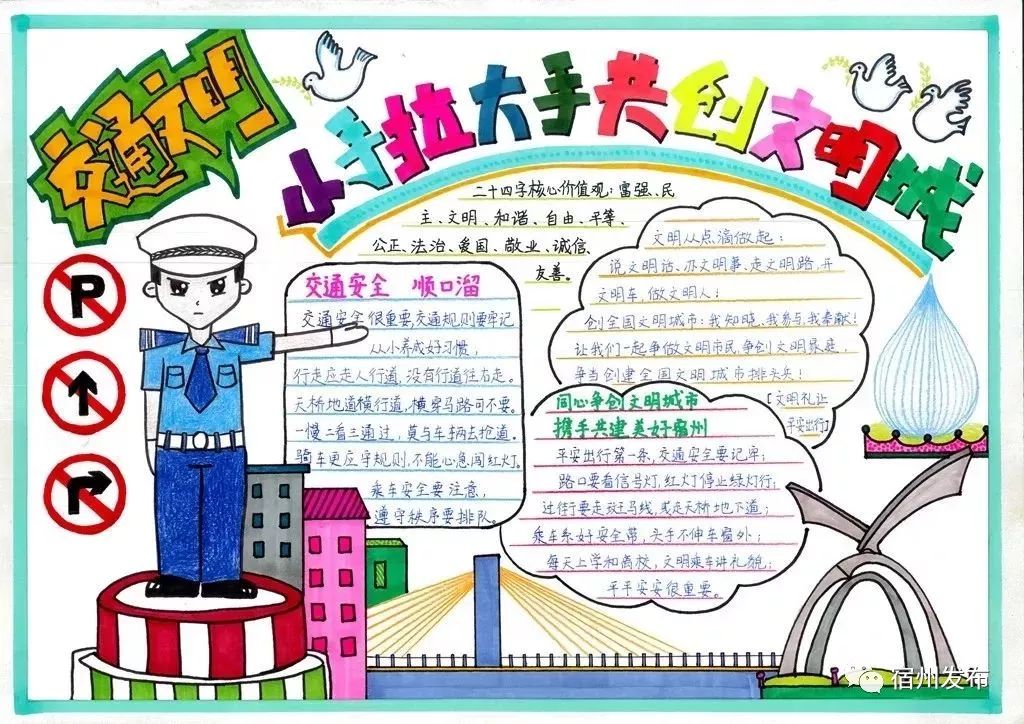 交通文明
小手拉大手共创文明城
二十四字核心价值观：富强、民
主、文明、和谐、自由、平等、
公正、法治、爱国、敬业、诚信、
友善。
交通安全 顺口溜
交通安全很重要,交通规则要牢记
从小养成好习惯，
行走应走人行道，没有行道往右走。
天桥地道横行道，横穿马路可不要。
一慢二看三通过，莫与车辆去抢道。
骑车更应守规则，不能心急闯红灯。
乘车安全要注意，
遵守秩序要排队。
文明从点滴做起：
说文明话、办文明事、走文明路,开
文明车，做文明人！
创全国文明城市：我知晓、我参与、我奉献！
让我们一起争做文明市民,争创文明県
争当创建全国文明城市排头兵！
「文明礼让
平安出行」
同心争创文明城市
携手共建美好宿州
平安出行第一条,交通安全要记牢；
路口要看信号灯,红灯停止绿灯行；
过街要走斑马线,或走天桥地下道；
乘车系好安全带，头手不伸车窗外；
每天上学和离校，文明乘车讲礼貌；
平平安安很重要。
P
宿州发布